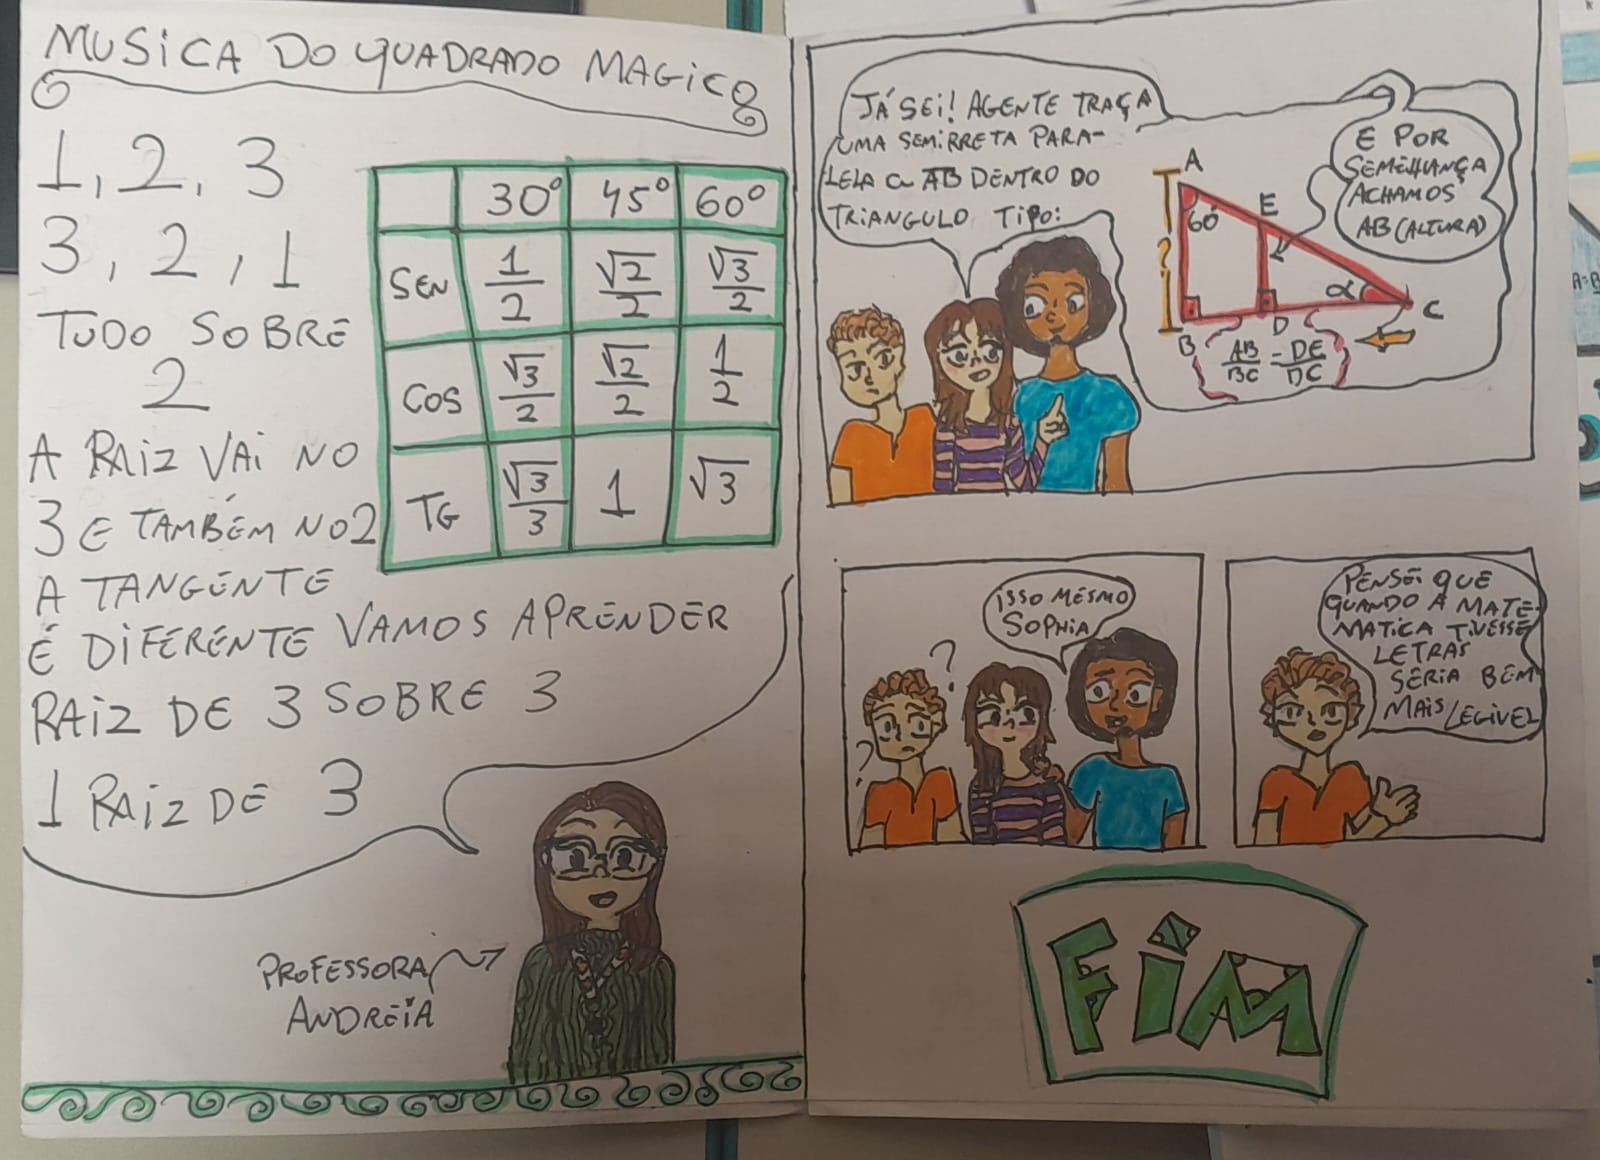 MUSICA DO QUADRADO MAGICO
1, 2, 3
3, 2, 1
TUDO SOBRE
2
A RAIZ VAI NO
3 E TAMBÉM NO 2
A TANGENTE
É DIFERENTE VAMOS APRENDER
RAIZ DE 3 SOBRE 3
1 RAIZ DE 3
30° 45° 60°
SEN 1/2 √2/2 √3/2
COS √3/2 √2/2 1/2
TG √3/3 1 √3
PROFESSORA
ANDREIA
JÁ SEI! AGENTE TRAÇA
UMA SEMIRRETA PARA-
LELA a AB DENTRO DO
TRIANGULO TIPO:
E POR
SEMELHANÇA
ACHAMOS
AB (ALTURA)
A
60
E
?
α
C
B
D
AB/BC = DE/DC
ISSO MESMO
SOPHIA
?
?
PENSEI QUE
QUANDO A MATE-
MATICA TIVESSE
LETRAS
SERIA BEM
MAIS LEGIVEL
FIM